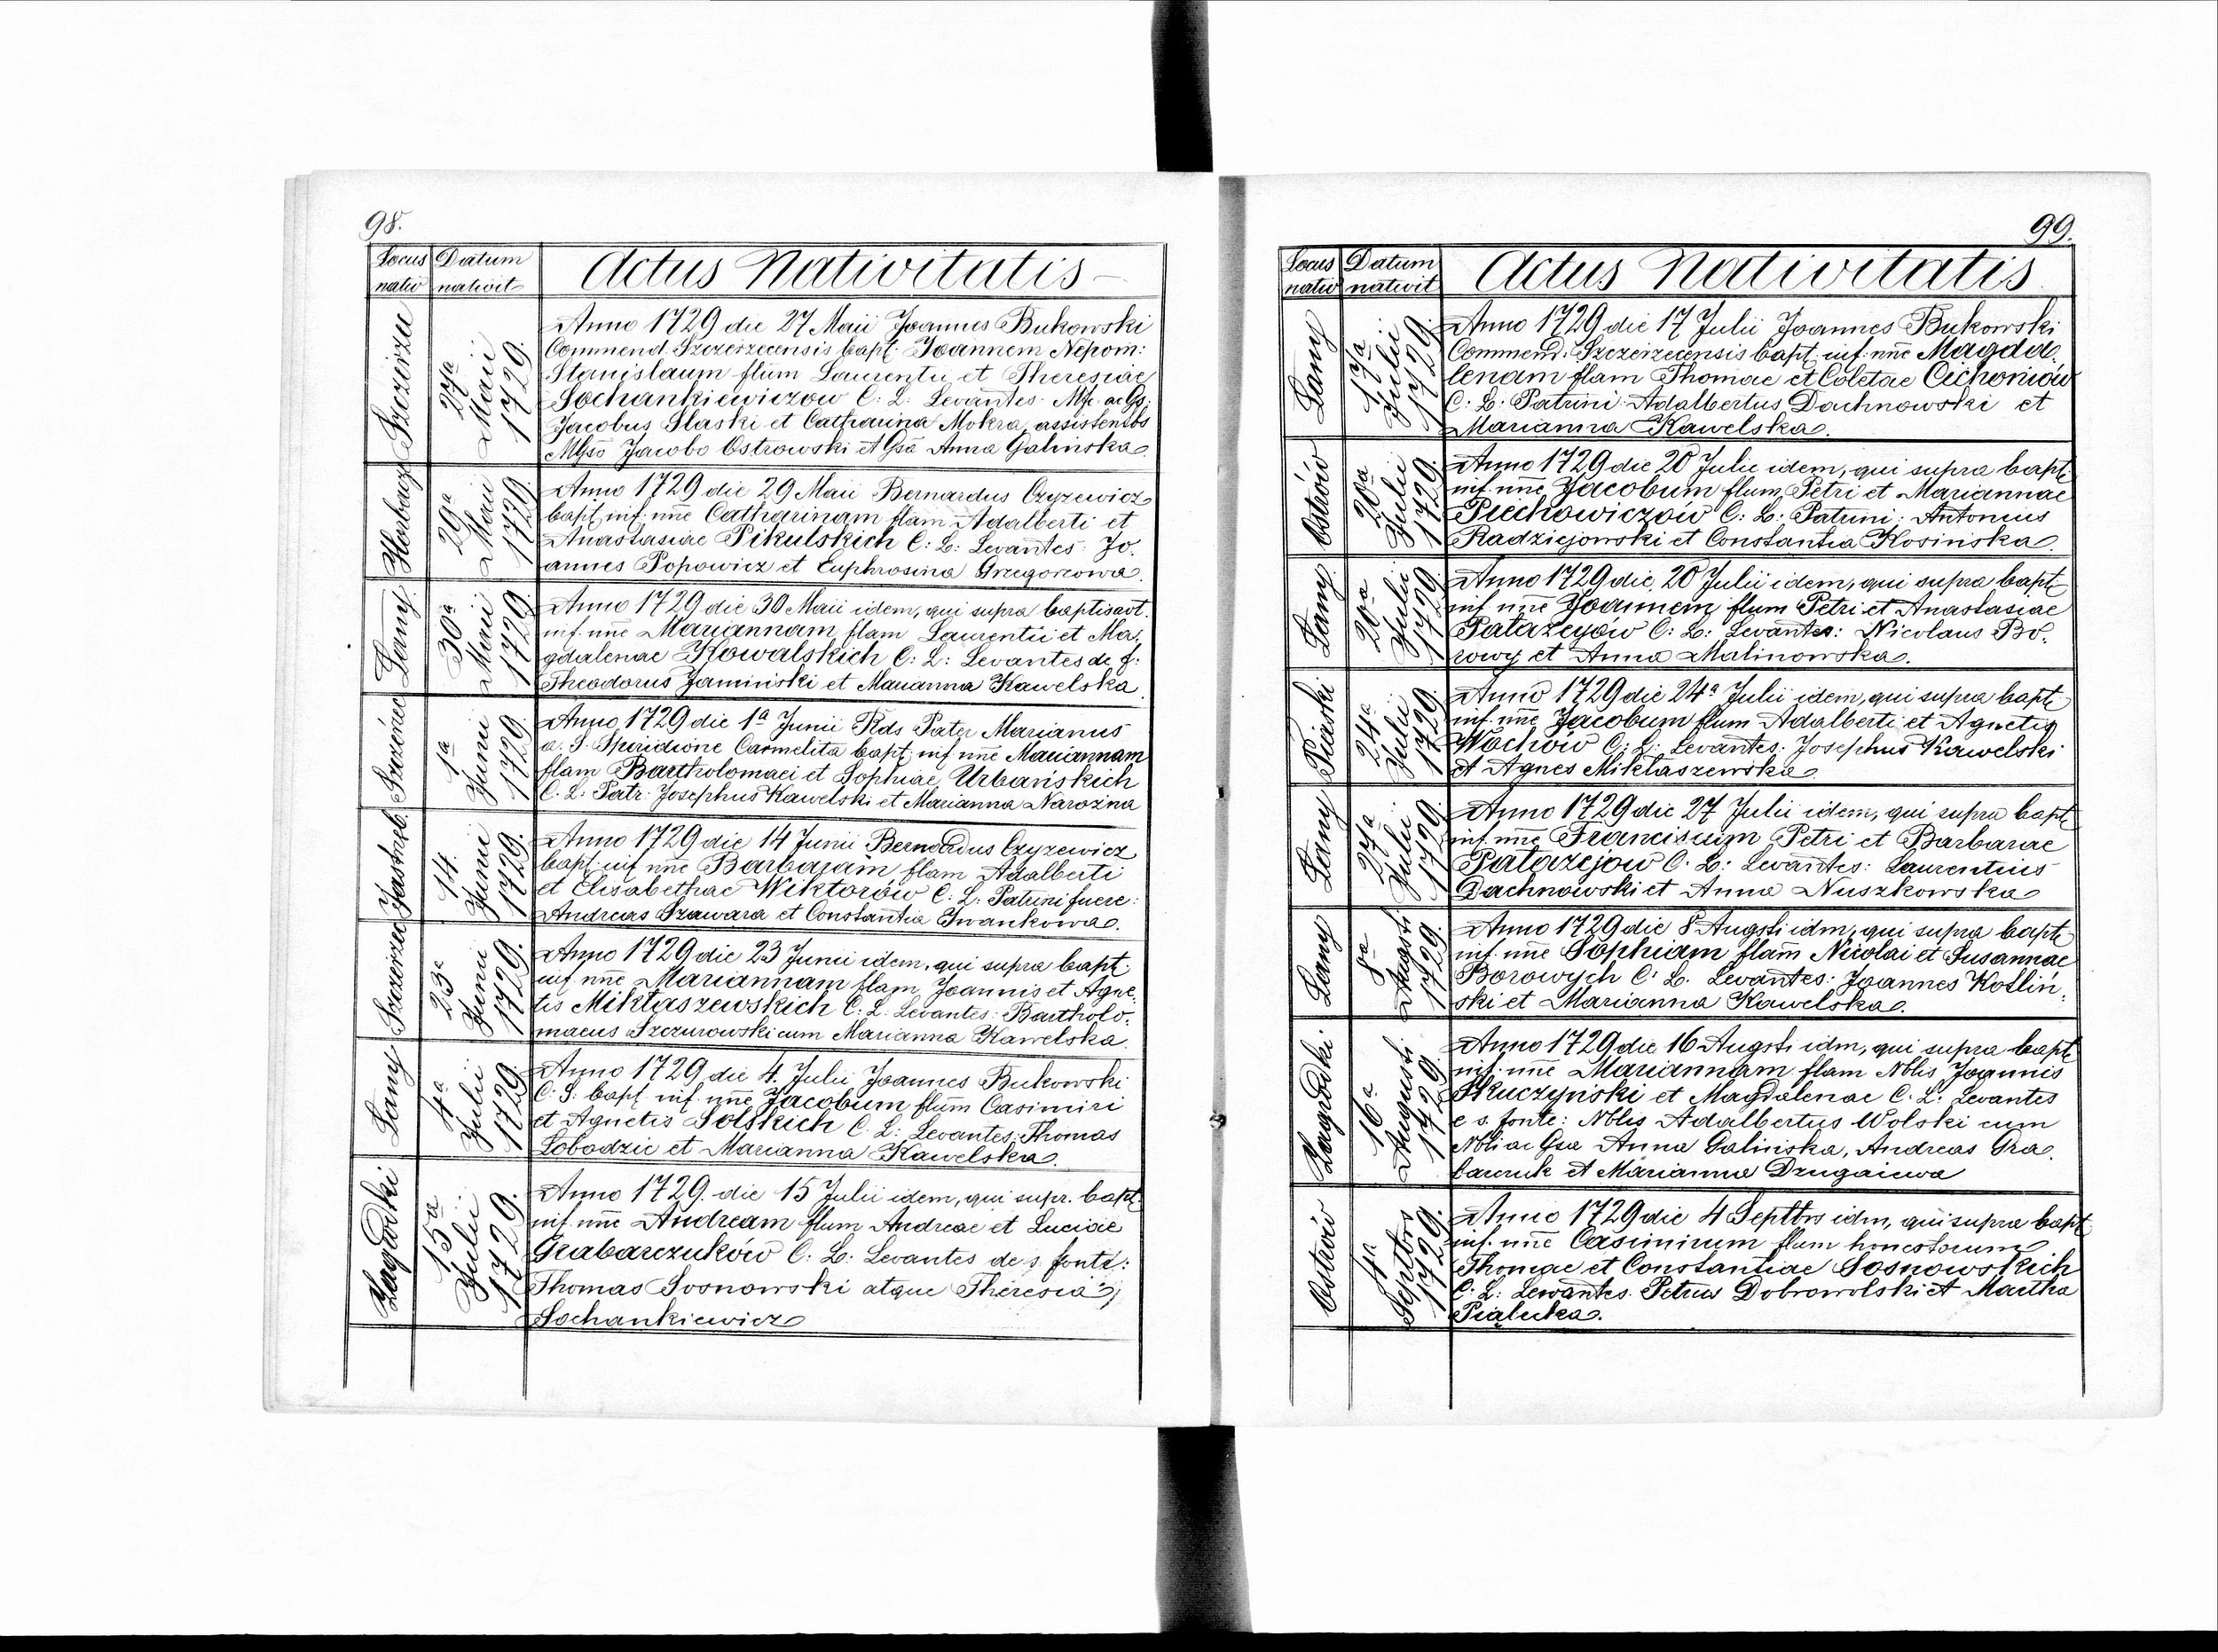 98.
Locus nativ
Datum nativit
Actus Nativitatis
Szczerzu
27a Maii 1729.
Anno 1729 die 27 Maii Joannes Bukowski
Commend. Szczerzecensis bapt: Joannem Nepom:
Stanislaum flium Laurentii et Theresiae
Sochankiewiczow C: L: Levantes: Mfc ac Gs:
Jacobus Slaski et Catharina Mokra, assistentbs
Mgso Jacobo Ostrowski et Gsa Anna Galinska.
Horbacz
29a Maii 1729
Anno 1729 die 29 Maii Bernardus Czyzewicz
bapt inf. nne Catharinam flam Adalberti et
Anastasiae Pikulskich C: L: Levantes: Jo.
annes Popowicz et Euphrosina Grzegorzowa.
Łany
30a Maii 1729
Anno 1729 die 30 Maii idem, qui supra baptisavt.
inf. nne Mariannam flam Laurentii et Ma,
gdalenae Kowalskich C: L: Levantes de f:
Theodorus Jaminski et Marianna Kawelska.
1a Junii 1729
Anno 1729 die 1a Junii Rds Pater Marianus
a. S. Spiridione Carmelita bapt: inf nne Mariannam
flam Bartholomaei et Sophiae Urbańskich
C. L: Patr: Josephus Kawelski et Marianna Narozna
Jastrzęb.
14. Junii 1729.
Anno 1729 die 14 Junii Bernardus Czyzewicz
bapt: inf nne Barbaram flam Adalberti
et Elisabethae Wiktorów C. L: Patrini fuere:
Andreas Szawara et Constantia Iwankowa.
Szczerzec
23a Junii 1729.
Anno 1729 die 23 Junii idem, qui supra bapt:
inf. nne Mariannam flam Joannis et Agne,
tis Miktaszewskich C: L: Levantes: Bartholo,
maeus Szczurowski cum Marianna Kawelska.
Łany
4a Julii 1729
Anno 1729 die 4. Julii Joannes Bukowski
C. S: bapt inf. nne Jacobum flum Casimiri
et Agnetis Solskich C. L: Levantes: Thomas
Lobodzic et Marianna Kawelska.
Zagrodki
15a Julii. 1729.
Anno 1729. die 15 Julii idem, qui supr. bapt:
inf. nne Andream flum Andreae et Luciae
Grabarczuków C: L: Levantes de s. fonte:
Thomas Sosnowski atque Theresia
Sochankiewicz
99.
Locus nativ
Datum nativit
Actus Nativitatis
Łany
17a Julii 1729.
Anno 1729 die 17 Julii Joannes Bukowski
Commend: Szczerzecensis bapt: inf. nne Magda,
lenam flam Thomae et Coletae Cichoniów
C: L: Patrini: Adalbertus Dachnowski et
Marianna Kawelska.
Ostrów
20a Julii 1729.
Anno 1729 die 20 Julii idem, qui supra bapt:
inf. nne Jacobum flum Petri et Mariannae
Piechowiczów C: L: Patrini: Antonius
Radziejowski et Constantia Kosińska.
Łany
20a Julii 1729
Anno 1729 die 20 Julii idem, qui supra bapt:
inf nne Joannem flum Petri et Anastasiae
Patarzejów C: L: Levantes: Nicolaus Bo.
rowy et Anna Malinowska.
Piaski
24a Julii 1729.
Anno 1729 die 24a Julii idem, qui supra bapt:
inf. nne Jacobum flum Adalberti et Agnetis
Wochów C: L: Levantes: Josephus Kawelski
et Agnes Miktaszewska.
Łany
27a Julii 1729.
Anno 1729 die 27 Julii idem, qui supra bapt:
inf. nne Franciscum Petri et Barbarae
Patarzejow C: L: Levantes: Laurentius
Dachnowski et Anna Nuszkowska
Łany
8a Augusti 1729.
Anno 1729 die 8 Augsti idm, qui supra bapt:
inf. nne Sophiam flam Nicolai et Susannae
Borowych C: L. Levantes: Joannes Koslin,
ski et Marianna Kawelska.
Zagrodki.
16a Augusti 1729.
Anno 1729 die 16 Augsti idm, qui supra bapt:
inf. nne Mariannam flam Nblis Joannis
Skuczyński et Magdalenae C. L: Levantes
e s. fonte: Nblis Adalbertus Wolski cum
Nbli ac Gsa Anna Galińska, Andreas Gra,
barczuk et Marianna Dzugaiewa
Ostrów
4a Septbris 1729.
Anno 1729 die 4 Septbrs idm, qui supra bapt:
inf. nne Casimirum flum honestorum
Thomae et Constantiae Sosnowskich
C: L: Levantes. Petrus Dobrowolski et Martha
Pialuka.